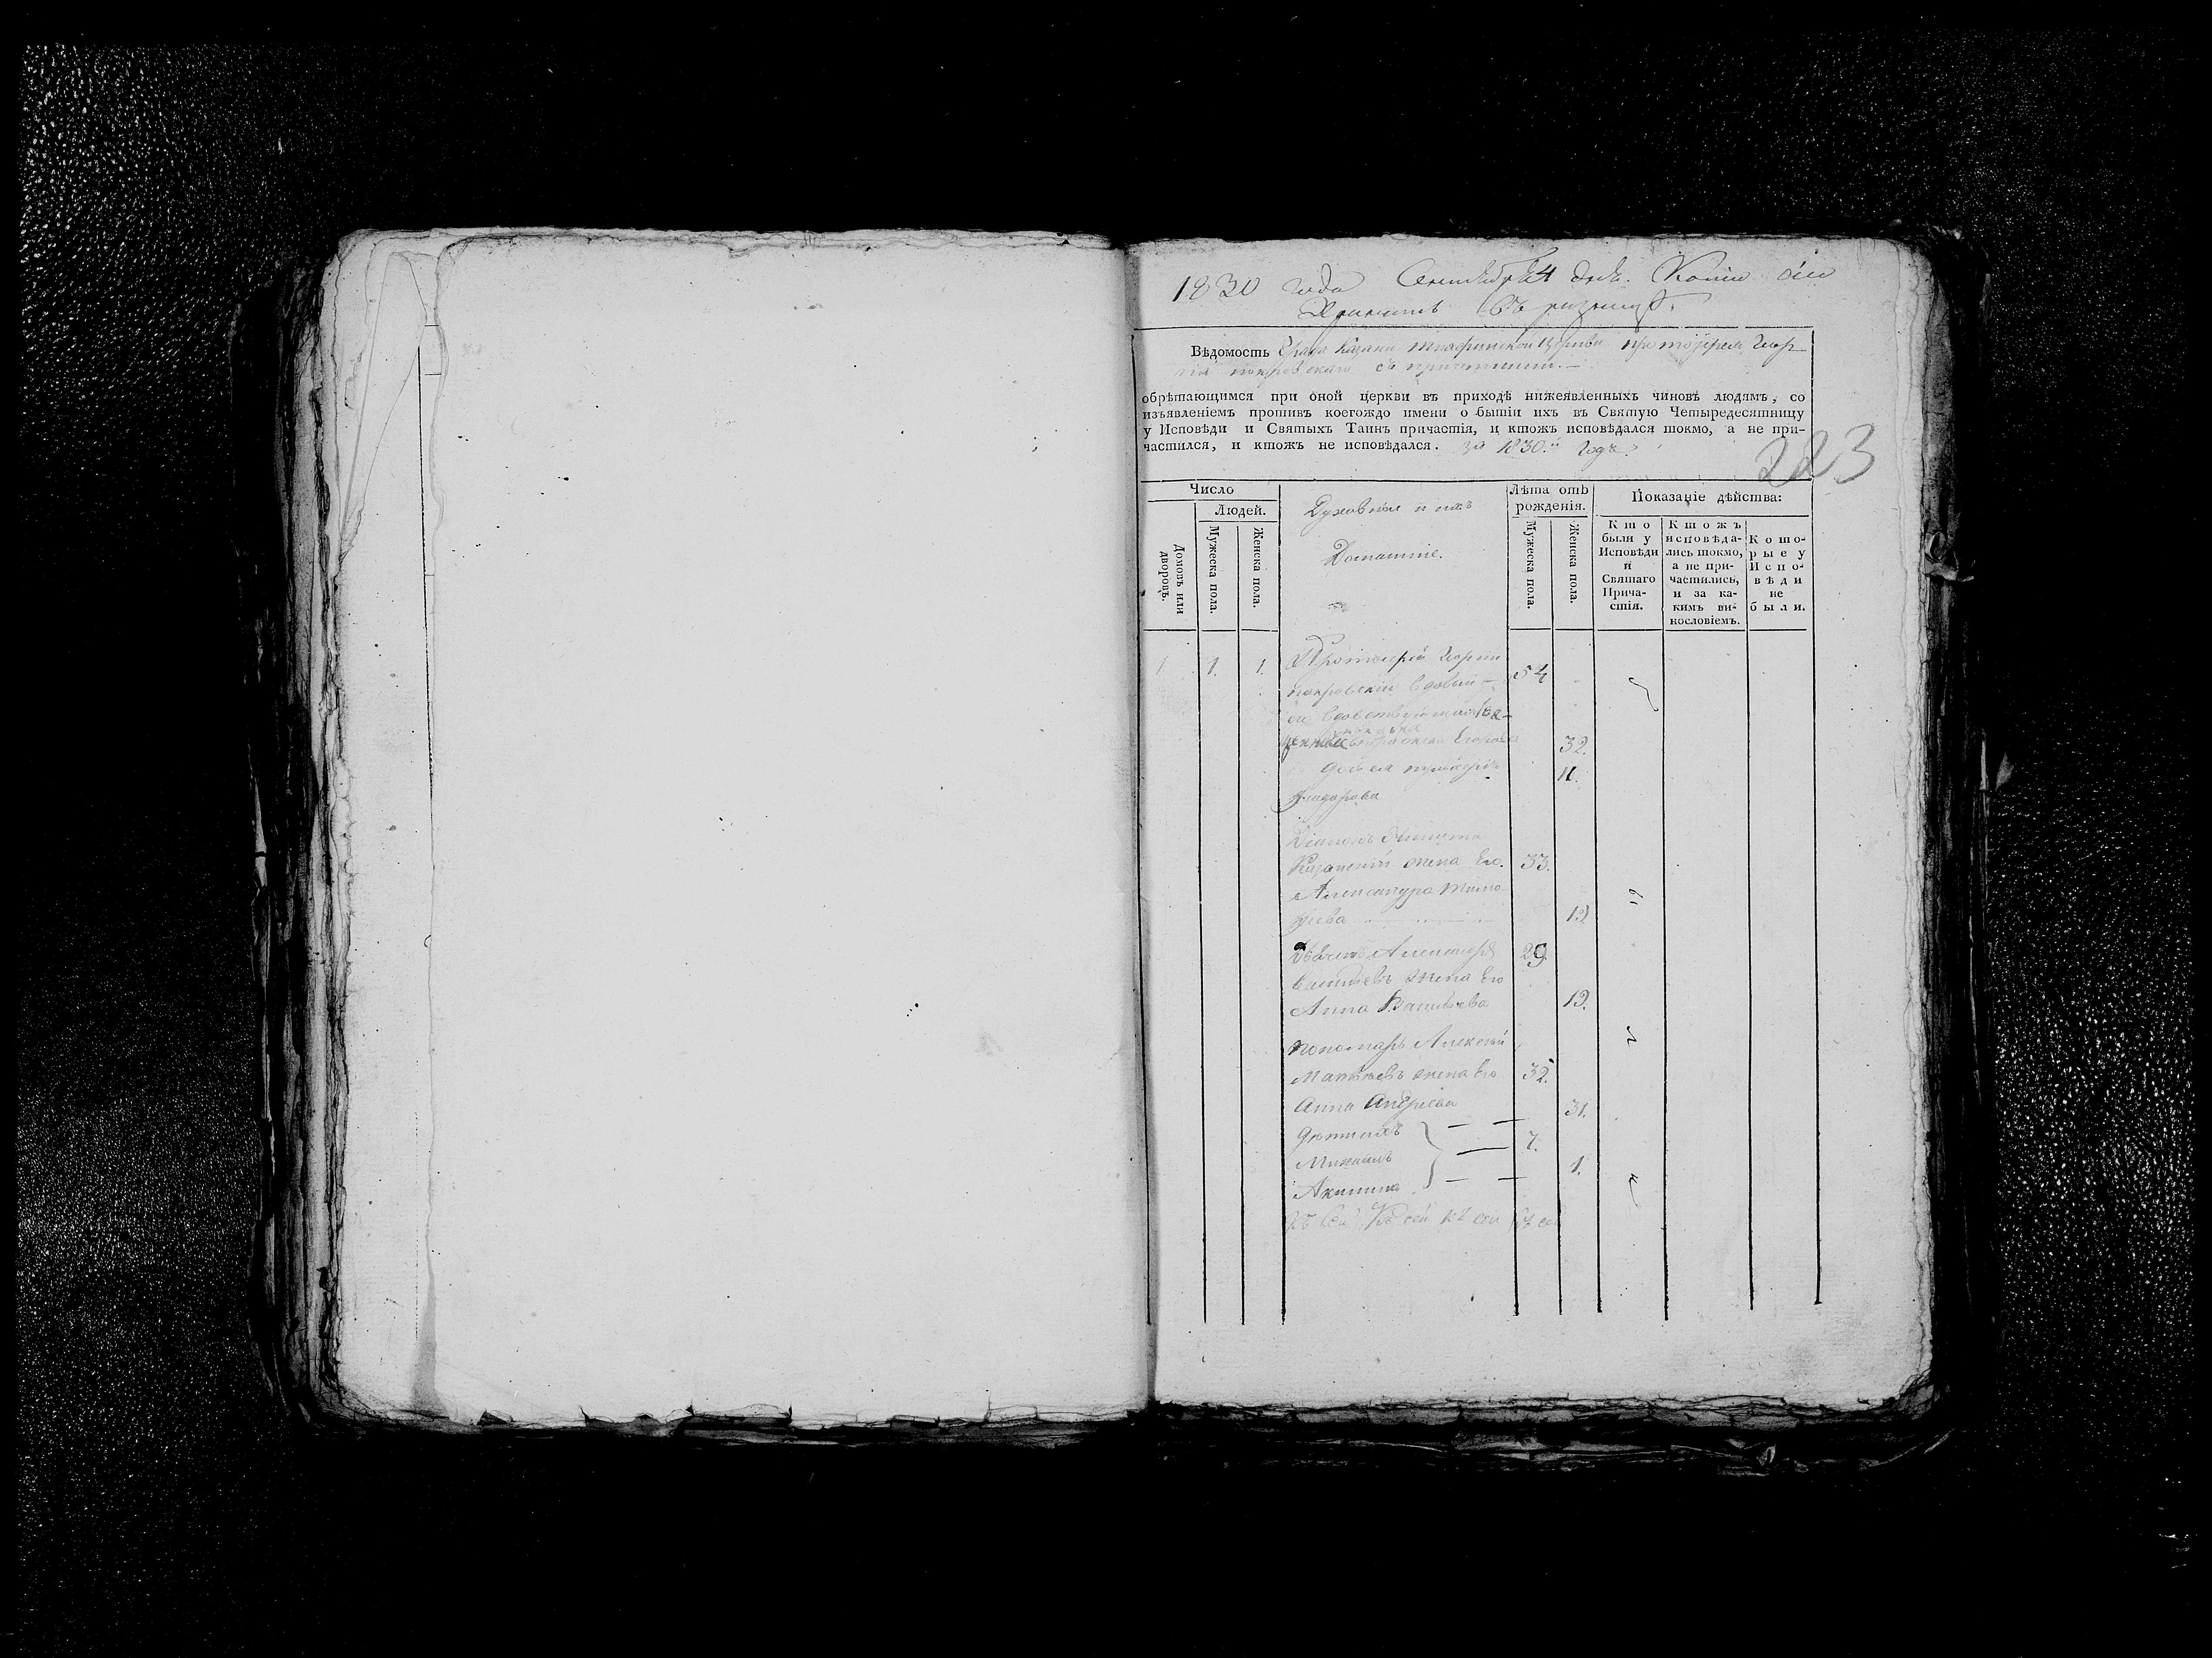 1830 года Сентября 4 дня. Копии сии
Хранить въ ризницѣ.
Вѣдомость Града Казани Тихвинской церкви протоіерея Геор
гія Покровскаго съ причетники.—
обрѣтающимся при оной церкви въ приходѣ нижеявленныхъ чиновъ людямъ, со
изъявленіемъ противъ коегождо имени о бытіи ихъ въ Святую Четыредесятницу
у Исповѣди и Святыхъ Таинъ причастія, и ктожъ исповѣдался токмо, а не при-
частился, и ктожъ не исповѣдался. за 1830.й годъ.
223
Число
Людей.
Домовъ или дворовъ.
Мужеска пола.
Женска пола.
Духовныя и ихъ
Домашніе.
Лѣта отъ рожденія.
Мужеска пола.
Женска пола.
Показаніе дѣйства:
Кто были у Исповѣди и Святаго Причастія.
Ктожъ исповѣдались токмо, а не причастились, и за какимъ викословіемъ.
Которые у Исповѣди не были.
1 1. 1. Протоіерей Георгій
Покровскій вдовый— 54
его вдовствующая
Егорова 32.
дочь ея 11.
Діаконъ
Казанскій жена Его. 33.
Александра Тимо
фѣева 19
Дьячекъ Александръ 29
Васильевъ жена Его
Анна Васильева 19.
Пономарь Алексѣй
Матвѣевъ жена Его 32.
Анна Андреева 31.
Дѣти ихъ
Михаилъ 7.
Акилина 1.
б ы л и